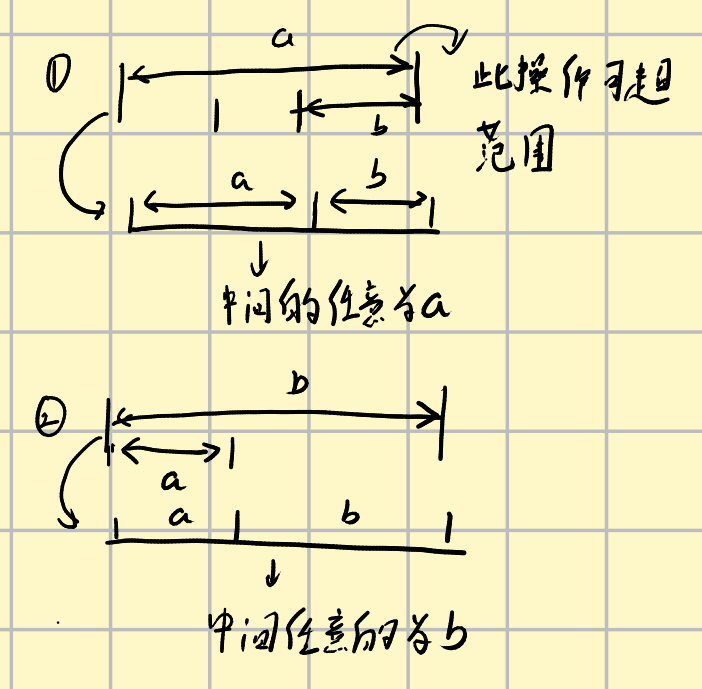 ①
a
此操作可超
范围
b
a
b
中间的任意为a
②
b
a
a
b
中间任意的为b